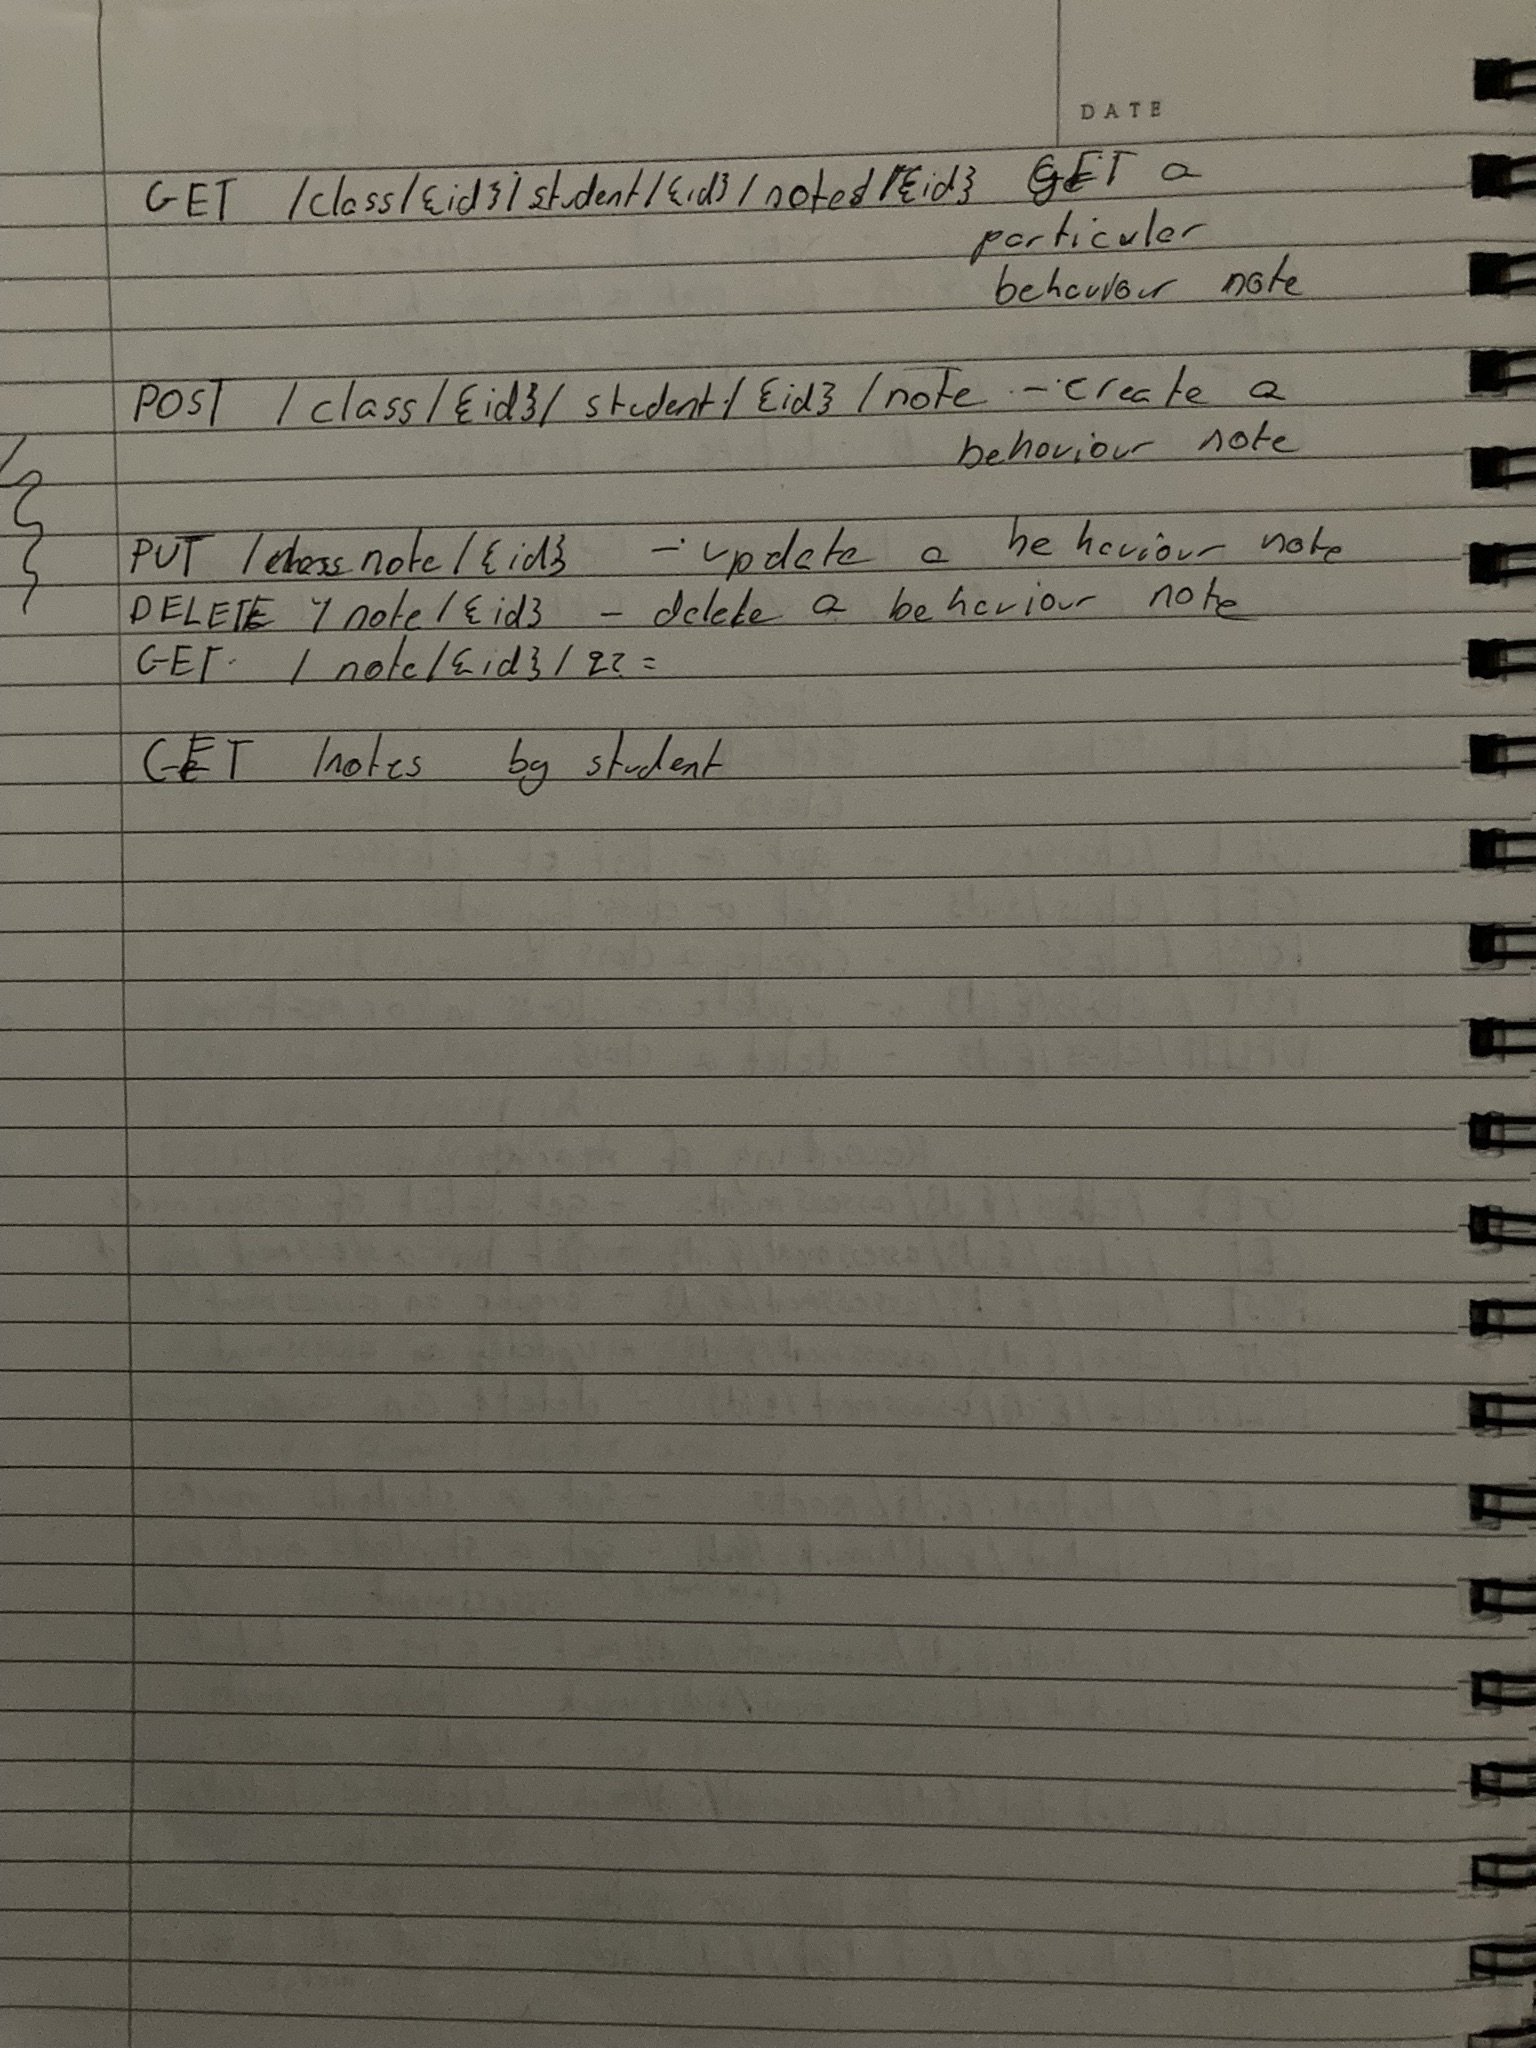 DATE
GET /class/{id}/student/{id}/notes/{id} GET a
particular
behaviour note
POST /class/{id}/student/{id}/note - create a
behaviour note
PUT /note/{id} - update a behaviour note
DELETE /note/{id} - delete a behaviour note
GET /note/{id}/??=
GET /notes by student